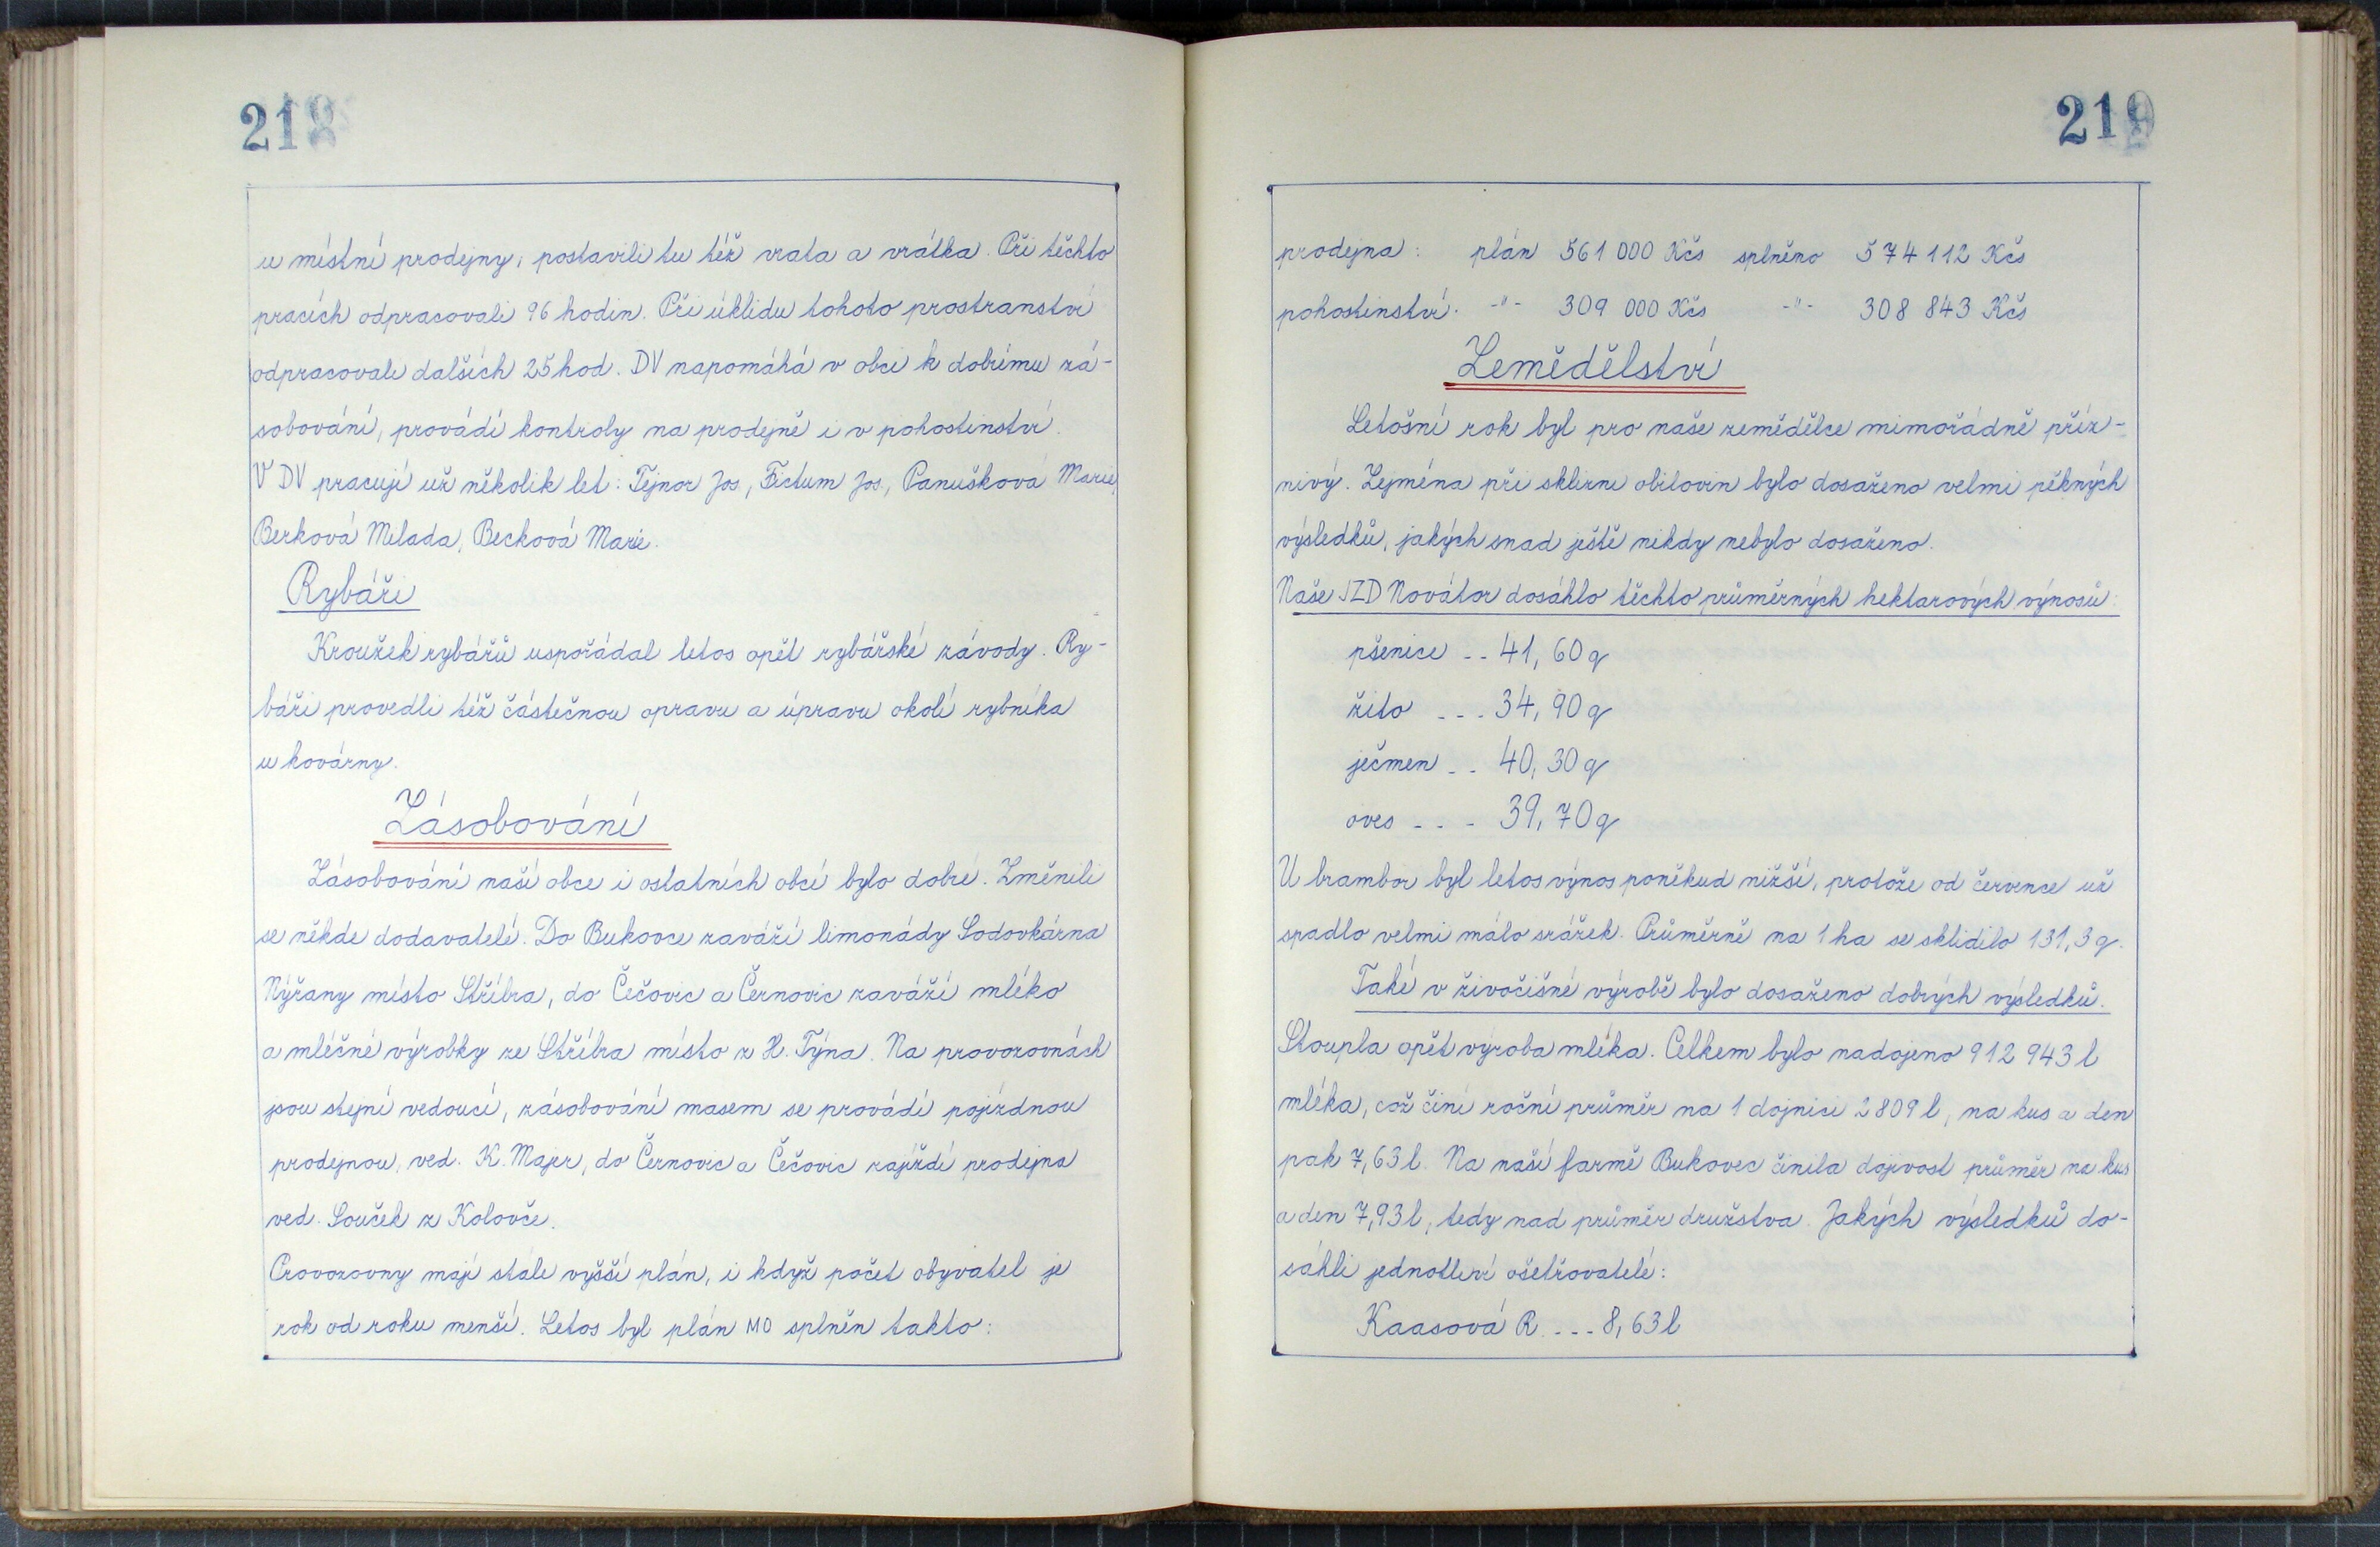 218
u místní prodejny, postavili tu též vrata a vrátka. Při těchto
pracích odpracovali 96 hodin. Při úklidu tohoto prostranství
odpracovali dalších 25 hod. DV napomáhá v obci k dobrému zá-
sobování, provádí kontroly na prodejně i v pohostinství.
V DV pracují už několik let: Tejnor Jos., Fictum Jos., Panušková Marie,
Berková Milada, Becková Marie.
Rybáři
Kroužek rybářů uspořádal letos opět rybářské závody. Ry-
báři provedli též částečnou opravu a úpravu okolí rybníka
u kovárny.
Zásobování
Zásobování naší obce i ostatních obcí bylo dobré. Změnili
se někde dodavatelé. Do Bukovce zaváží limonády Sodovkárna
Nýřany místo Stříbra, do Čečovic a Černovic zaváží mléko
a mléčné výrobky ze Stříbra místo z H. Týna. Na provozovnách
jsou stejní vedoucí, zásobování masem se provádí pojízdnou
prodejnou, ved. K. Majer, do Černovic a Čečovic zajíždí prodejna
ved. Souček z Kolovče.
Provozovny mají stále vyšší plán, i když počet obyvatel je
rok od roku menší. Letos byl plán MO splněn takto:
219
prodejna: plán 561 000 Kčs splněno 574 112 Kčs
pohostinství. -"- 309 000 Kčs -"- 308 843 Kčs
Zemědělství
Letošní rok byl pro naše zemědělce mimořádně příz-
nivý. Zejména při sklizni obilovin bylo dosaženo velmi pěkných
výsledků, jakých snad ještě nikdy nebylo dosaženo.
Naše JZD Novátor dosáhlo těchto průměrných hektarových výnosů:
pšenice -- 41,60 q
žito --- 34,90 q
ječmen -- 40,30 q
oves --- 39,70 q
U brambor byl letos výnos poněkud nižší, protože od července už
spadlo velmi málo srážek. Průměrně na 1 ha se sklidilo 131,3 q.
Také v živočišné výrobě bylo dosaženo dobrých výsledků.
Stoupla opět výroba mléka. Celkem bylo nadojeno 912 943 l
mléka, což činí roční průměr na 1 dojnici 2 809 l, na kus a den
pak 7,63 l. Na naší farmě Bukovec činila dojivost průměr na kus
a den 7,93 l, tedy nad průměr družstva. Jakých výsledků do-
sáhli jednotliví ošetřovatelé:
Kaasová R. --- 8,63 l